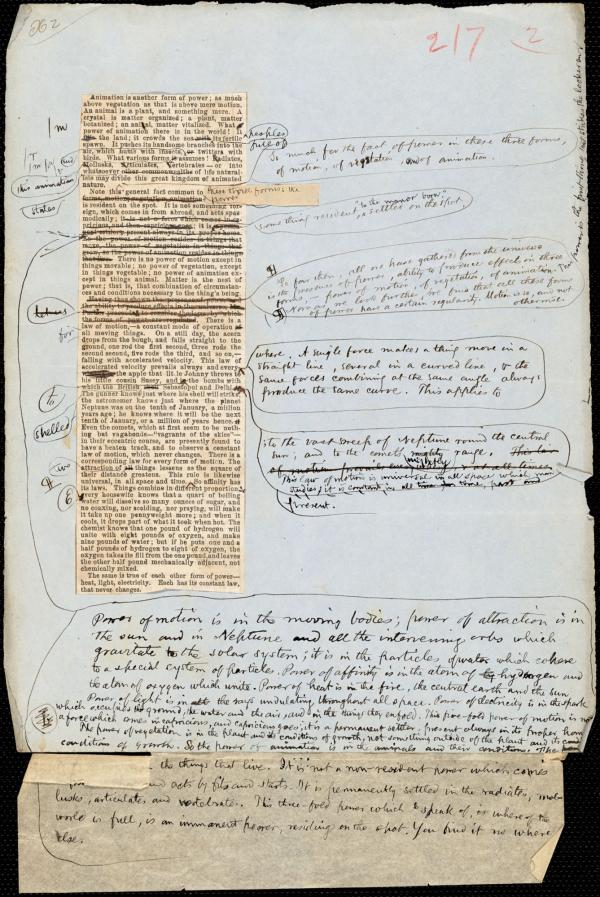 262
217 2
Animation is another form of power; as much
above vegetation as that is above mere motion.
An animal is a plant, and something more. A
crystal is matter organized; a plant, matter
botanized; an animal, matter vitalized. What
power of animation there is in the world! It
the land; it crowds the sea with its fertile
spawn. It pushes its handsome branches into the
air, which hums with insects, or twitters with
birds. What various forms it assumes! Radiates,
Mollusks, Articulates, Vertebrates — or into
whatsoever other commonwealths of life natural-
ists may divide this great kingdom of animated
nature.
Note this general fact common to these three forms: the
power
is resident on the spot. It is not something for-
eign, which comes in from abroad, and acts spas-
modically;
There is no power of motion except in
things movable; no power of vegetation, except
in things vegetable; no power of animation ex-
cept in things animal. Matter is the seat of
power; that is, that combination of circumstan-
ces and conditions necessary to the thing's being.
There is a
law of motion,—a constant mode of operation
all moving things. On a still day, the acorn
drops from the bough, and falls straight to the
ground, one rod the first second, three rods the
second second, five rods the third, and so on,—
falling with accelerated velocity. This law of
accelerated velocity prevails always and every
the apple that lit. le Johnny throws to
his little cousin Susy, and in the bombs with
which the British Sebastopol and Delhi.
The gunner knows just where his shell will strike;
the astronomer knows just where the planet
Neptune was on the tenth of January, a million
years ago; he knows where it will be the next
tenth of January, or a million of years hence.
Even the comets, which at first seem to be noth-
ing but vagabonds—"vagrants of the skies"—
in their eccentric course, are presently found to
have a beaten track, and to observe a constant
law of motion, which never changes. There is a
corresponding law for every form of motion. The
attraction of all things lessens as the square of
their distance greatens. This rule is likewise
universal, in all space and time. So affinity has
its laws. Things combine in different proportions;
every housewife knows that a quart of boiling
water will dissolve so many ounces of sugar, and
no coaxing, nor scolding, nor praying, will make
it take up one pennyweight more; and when it
cools, it drops part of what it took when hot. The
chemist knows that one pound of hydrogen will
unite with eight pounds of oxygen, and make
nine pounds of water; but if he puts one and a
half pounds of hydrogen to eight of oxygen, the
oxygen takes its fill from the one pound, and leaves
the other half pound mechanically adjacent, not
chemically mixed.
The same is true of each other form of power—
heat, light, electricity. Each has its constant law,
that never changes.
/m
This animation
states
for
to
shelled
two
peoples
full of
So much for the fact of power in these three forms,
of motion, of vegetation, and of animation.
"to the manor born"
something resident, & settled on the spot.
So far then, all one have gathered from the universe
is the presence of power, ability to produce effect, in three
forms,—power of motion, of vegetation, of animation.
Now one look further, & find that all these forms
of power have a certain regularity. Motion is, and
otherwise.
where. A single force makes a thing move in a
straight line, several in a curved line, & the
same forces combining at the same angle always
produce the same curve. This applies to
to the vast sweep of Neptune round the central
sun; and to the comet's mighty range.
This law of motion is universal in all space which man
studies; it is constant in all time
present.
Power of motion is in the moving bodies; power of attraction is in
the sun and in Neptune and all the intervening orbs which
gravitate to the solar system; it is in the particles of water which cohere
to a special system of particles. Power of affinity is in the atom of hydrogen and
the atom of oxygen which unite. Power of heat is in the fire, the central earth and the sun
Power of light is in all the rays undulating throughout all space. Power of electricity is in the spark
which occupies the ground, the water and the air, and in the things they enfold. This five-fold power of motion is not
a force which comes in capricious, and capricious goes; it is a permanent settler, present always in its proper home
The power of vegetation is in the plant and its conditions of growth, not something outside of the plant and its
conditions of growth. So the power of animation is in the animals and their conditions. The
the things that live. It is not a non-resident power which comes
and acts by fits and starts. It is permanently settled in the radiates, mol-
lusks, articulates and vertebrates. This three-fold power which I speak of, & whereof the
world is full, is an immanent power, residing on the spot. You find it no where
else.